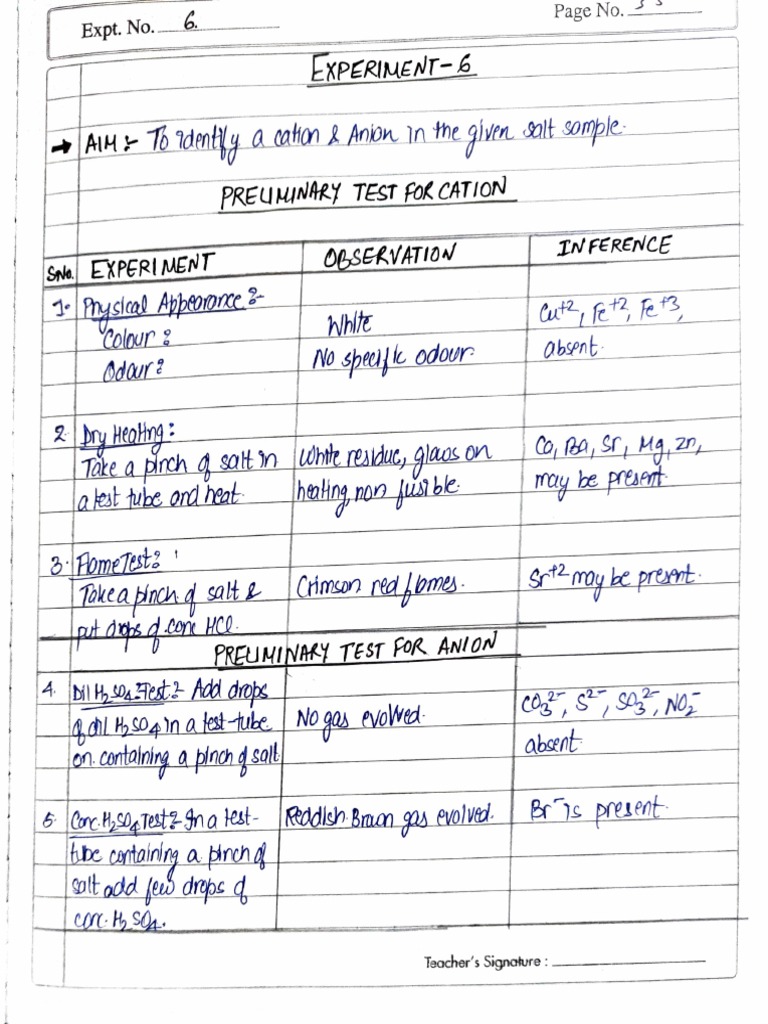 Expt. No. 6.
Page No.
EXPERIMENT-6
→ AIM :- To identify a cation & Anion in the given salt sample.
PRELIMINARY TEST FOR CATION
SNo. EXPERIMENT OBSERVATION INFERENCE
1. Physical Appearance :-
Colour : White Cu+2, Fe+2, Fe+3,
Odour : No specific odour. absent.
2. Dry Heating :
Take a pinch of salt in White residue, glows on Ca, Ba, Sr, Mg, Zn,
a test tube and heat. heating, non fusible. may be present.
3. Flame Test :
Take a pinch of salt & Crimson red flames. Sr+2 may be present.
put drops of conc HCl.
PRELIMINARY TEST FOR ANION
4. Dil H2SO4 Test :- Add drops CO3 2-, S2-, SO3 2-, NO2-
of dil H2SO4 in a test-tube No gas evolved. absent.
on. containing a pinch of salt
5. Conc. H2SO4 Test :- In a test- Reddish Brown gas evolved. Br- is present.
tube containing a pinch of
salt add few drops of
conc. H2SO4.
Teacher's Signature :